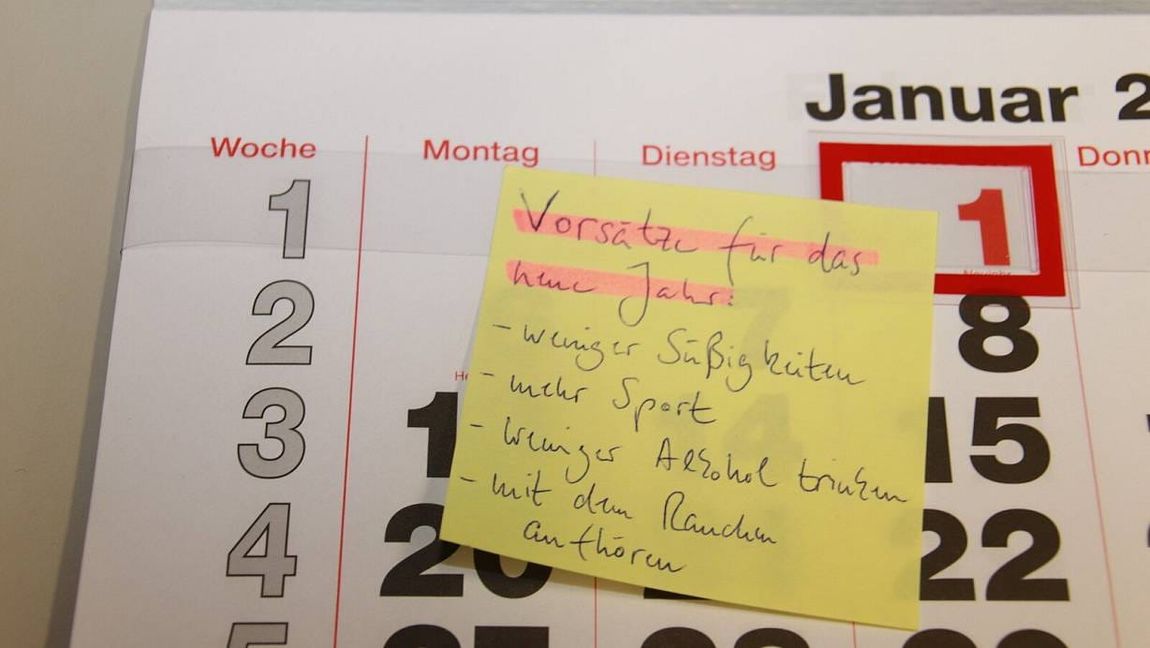 Januar 2
Woche Montag Dienstag Donn
1 1
Neujahr
2 8
3 1 15
4 20 22
5 27 28 29
Vorsätze für das
neue Jahr:
- weniger Süßigkeiten
- mehr Sport
- weniger Alkohol trinken
- mit dem Rauchen
aufhören